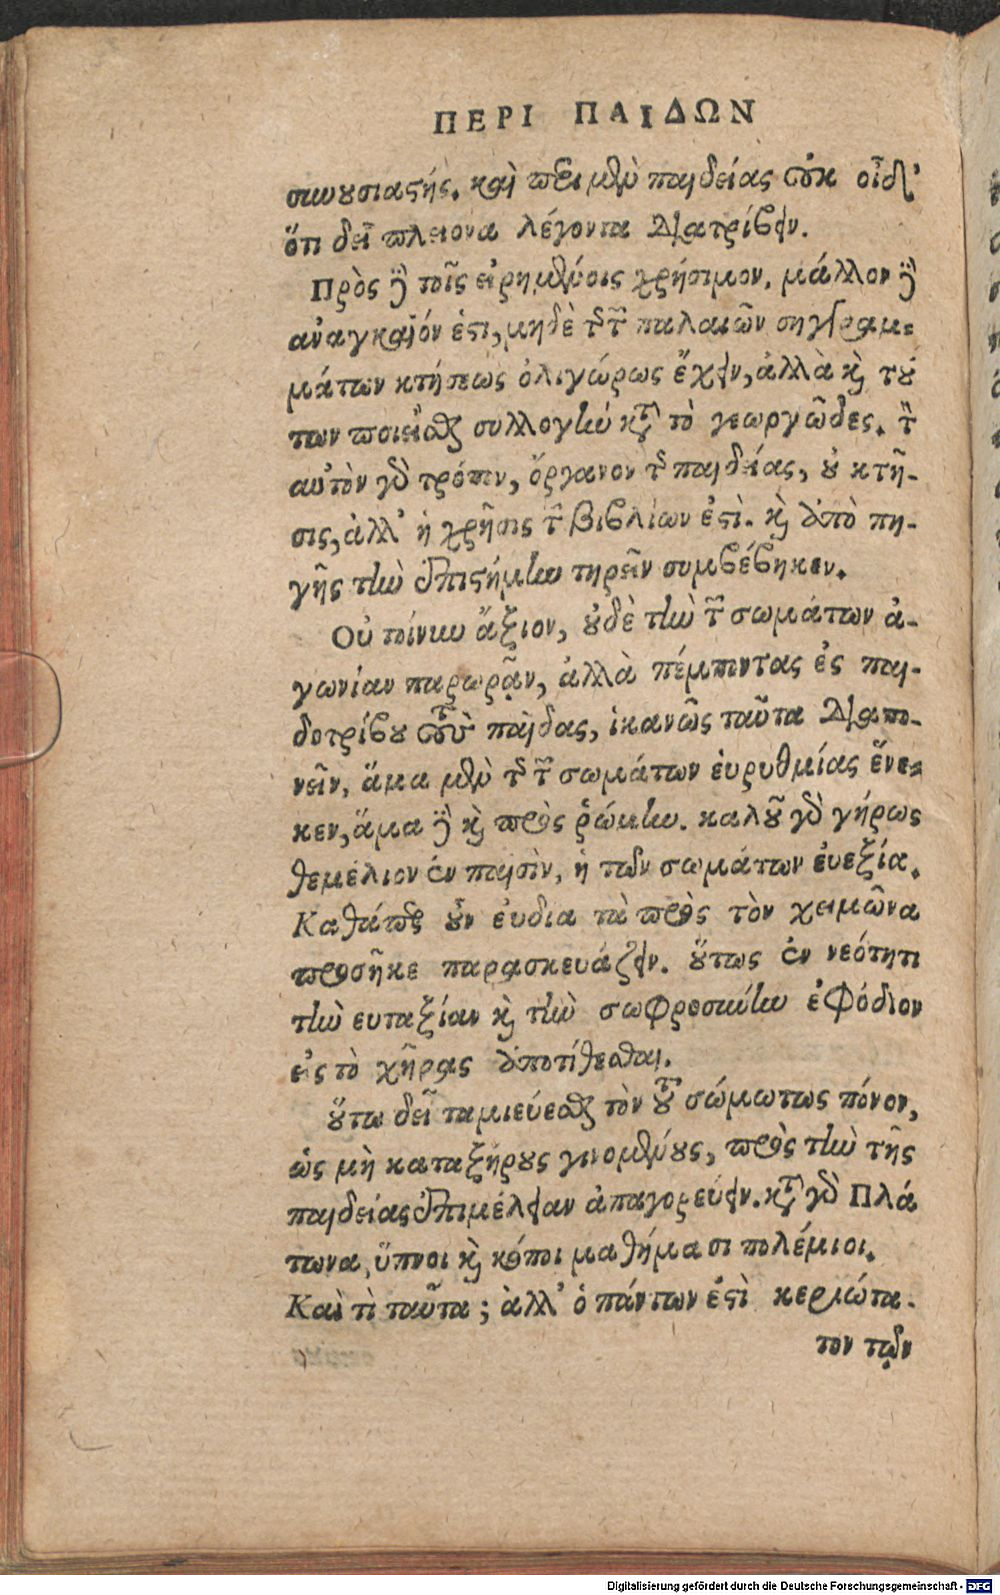 ΠΕΡΙ ΠΑΙΔΩΝ
συνουσιαστής. καὶ περὶ μὲν παιδείας οὐκ οἶδ’
ὅτι δεῖ πλείονα λέγοντα διατρίβειν.
Πρὸς δὲ τοῖς εἰρημένοις χρήσιμον, μᾶλλον δὲ
ἀναγκαῖόν ἐστι, μηδὲ τῆς τῶν παλαιῶν συγγραμ-
μάτων κτήσεως ὀλιγώρως ἔχειν, ἀλλὰ καὶ τού
των ποιεῖσθαι συλλογὴν κατὰ τὸ γεωργῶδες. τὸν
αὐτὸν γὰρ τρόπον, ὄργανον τῆς παιδείας, οὐ κτῆ-
σις, ἀλλ’ ἡ χρῆσις τῶν βιβλίων ἐστὶ. καὶ ἀπὸ πη-
γῆς τὴν ἐπιστήμην τηρεῖν συμβέβηκεν.
Οὐ τοίνυν ἄξιον, οὐδὲ τὴν τῶν σωμάτων ἀ-
γωνίαν παρορᾷν, ἀλλὰ πέμποντας ἐς παι-
δοτρίβου τοὺς παῖδας, ἱκανῶς ταῦτα διαπο-
νεῖν, ἅμα μὲν τῆς τῶν σωμάτων εὐρυθμίας ἕνε-
κεν, ἅμα δὲ καὶ πρὸς ῥώμην. καλοῦ γὰρ γήρως
θεμέλιον ἐν παισὶν, ἡ τῶν σωμάτων εὐεξία.
Καθάπερ οὖν εὐδία τὰ πρὸς τὸν χειμῶνα
προσῆκε παρασκευάζειν. οὕτως ἐν νεότητι
τὴν ευταξίαν καὶ τὴν σωφροσύνην ἐφόδιον
εἰς τὸ γῆρας ἀποτίθεσθαι.
οὕτω δεῖ ταμιεύεσθαι τὸν τοῦ σώματος πόνον,
ὡς μὴ καταξήρους γινομένους, πρὸς τὴν τῆς
παιδείας ἐπιμέλειαν ἀπαγορεύειν. κατὰ γὰρ Πλά
τωνα, ὕπνοι καὶ κόποι μαθήμασι πολέμιοι.
Καὶ τὶ ταῦτα; ἀλλ’ ὁ πάντων ἐστὶ κεριώτα-
τον τῶν
Digitalisierung gefördert durch die Deutsche Forschungsgemeinschaft - DFG